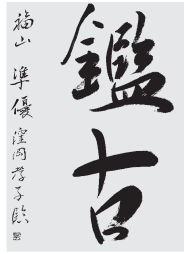 鑑古
福山 準優 窪岡孝子臨